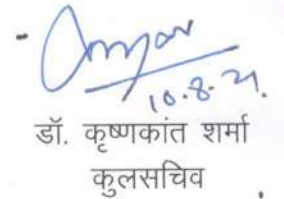 10.8.21.
डॉ. कृष्णकांत शर्मा
कुलसचिव